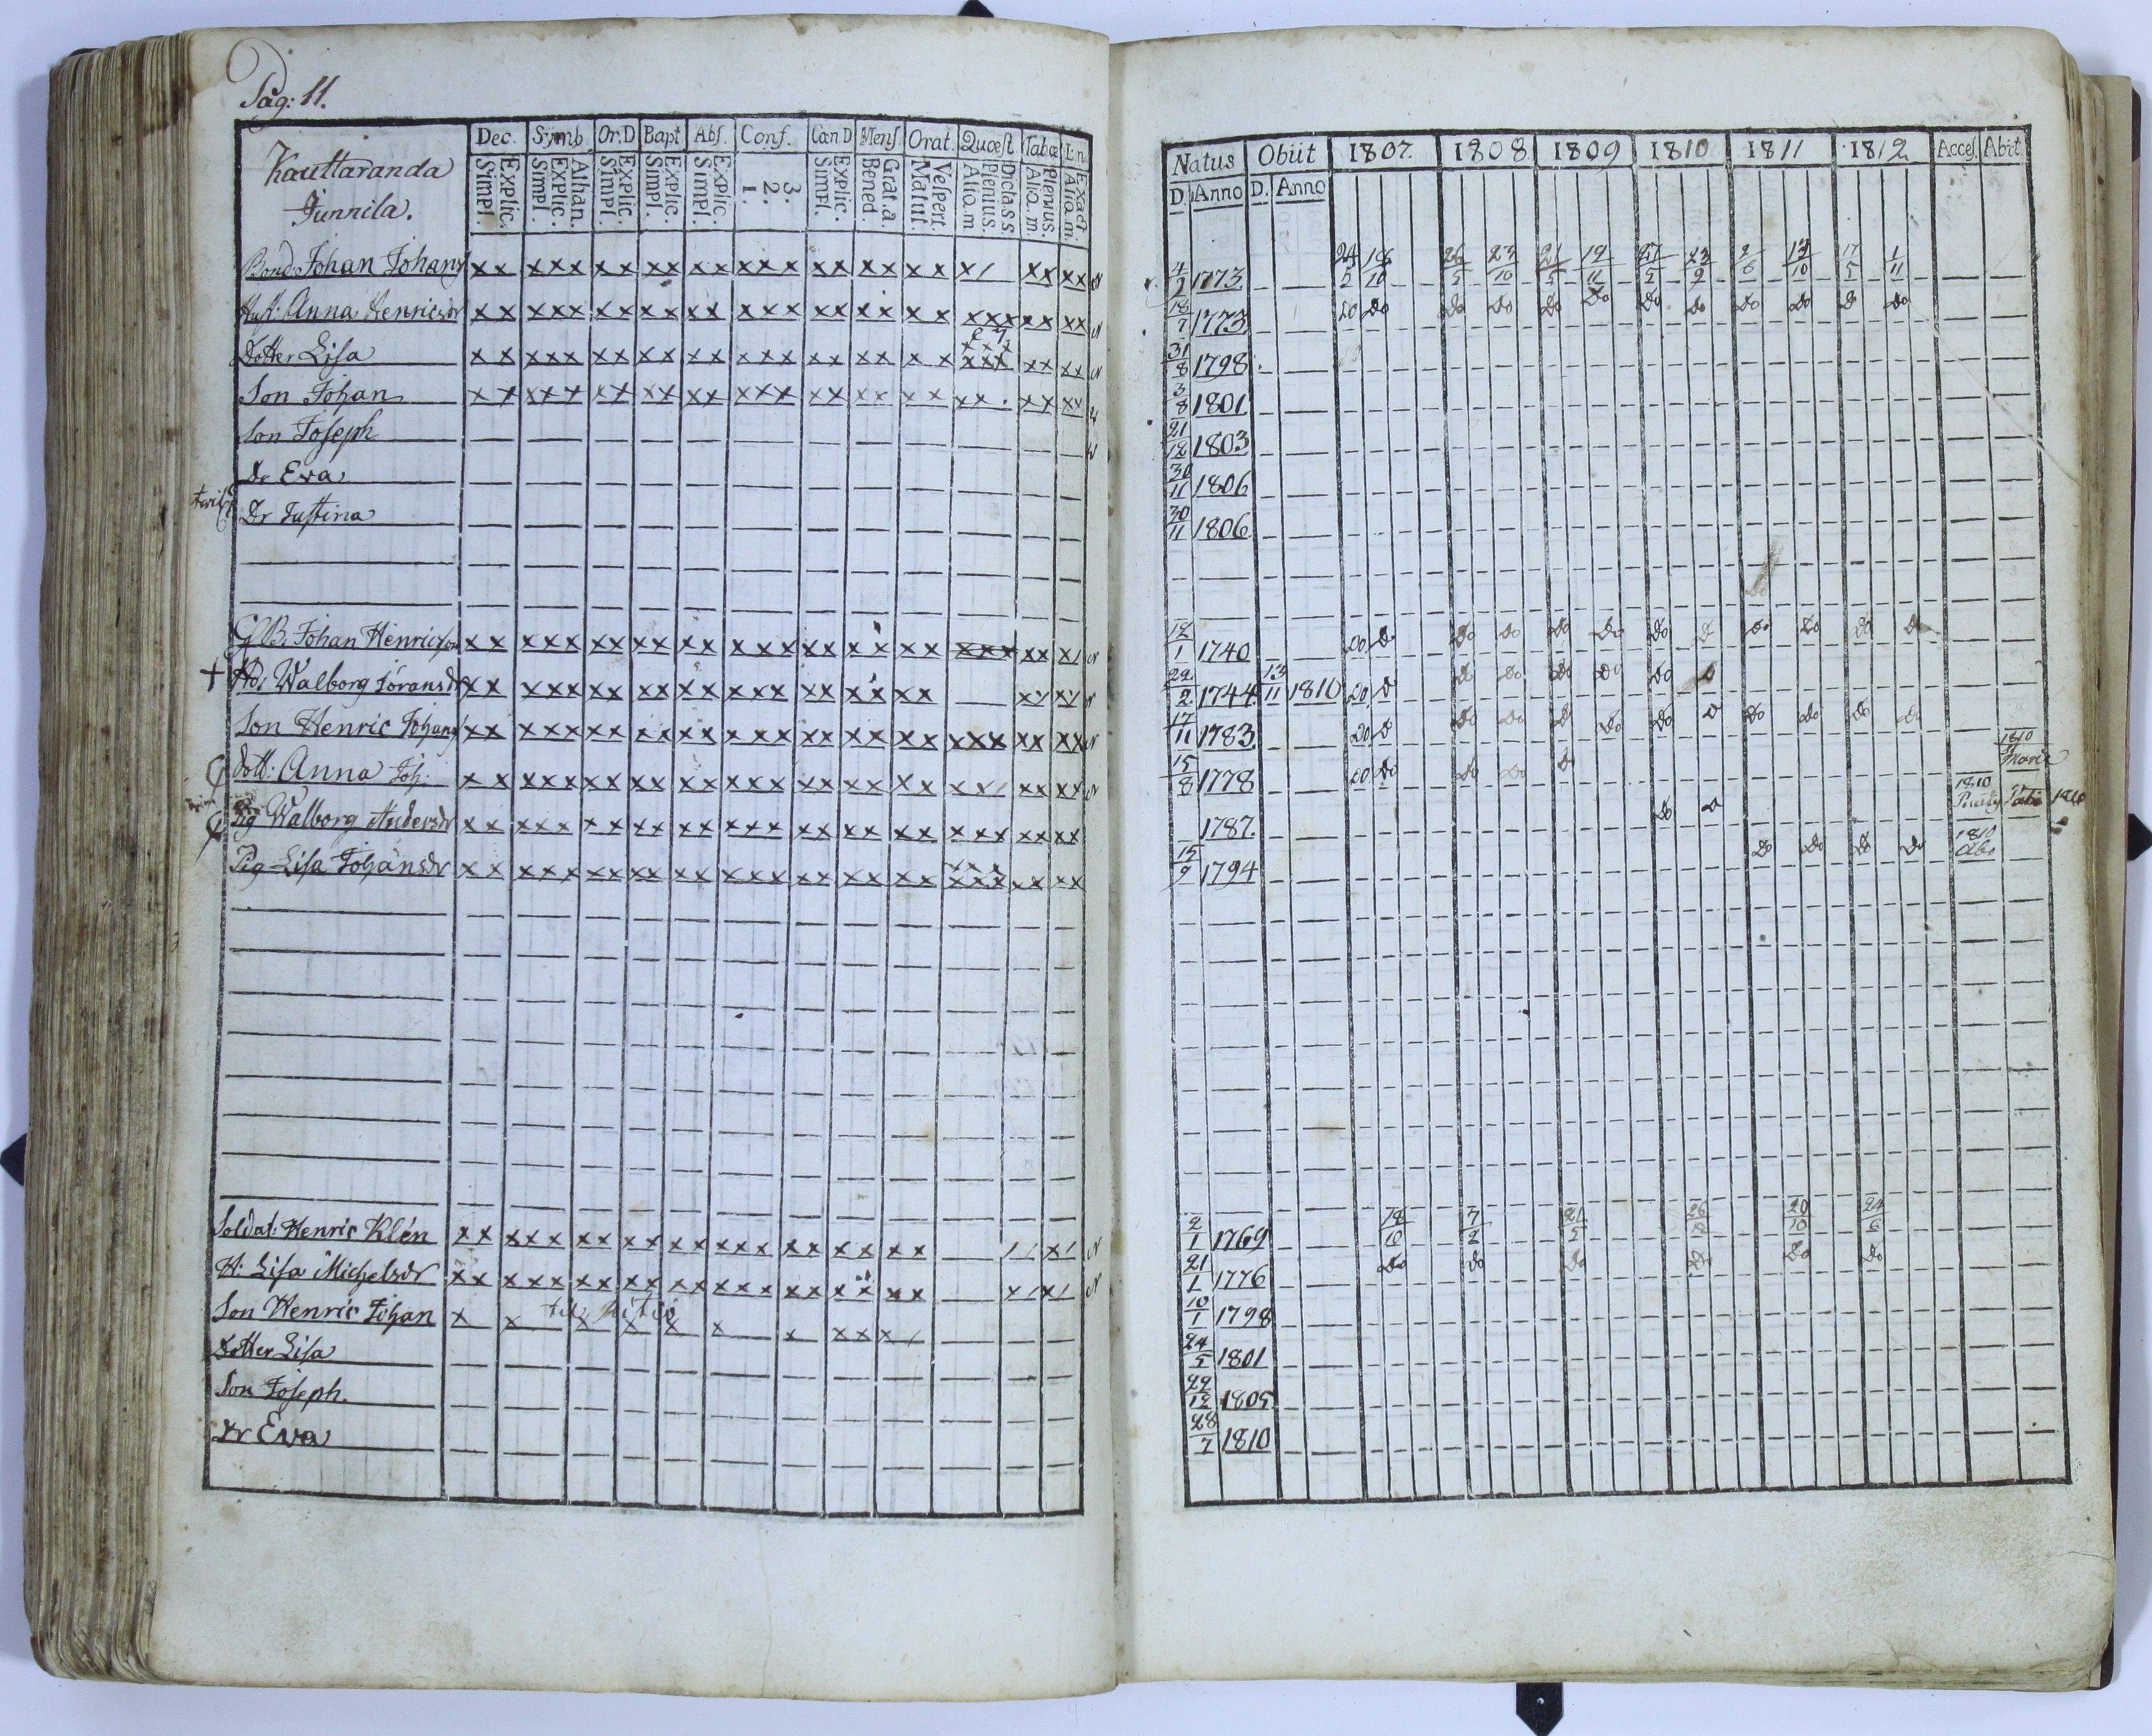 Pag: 11.
Kauttaranda
Junnila.
Dec. Symb. Or.D Bapt Abs. Conf. Can D Mens. Orat. Quæst Tabæ
Simpl. Explic. Simpl. Explic. Athan. Simpl. Explic. Simpl. Explic. Simpl. Explic. 1. 2. 3. Simpl. Explic. Bened. Grat.a. Matut. Vespert. Aliq.m Plenius. Dicta s.s. Aliq.m. Plenius. Aliq.m. Exact
Bond: Johan Johans xx xxx xx xx xx xxx xx xx xx x/ xx xx
Hust: Anna Henricsdr xx xxx xx xx xx xxx xx xx xx xxx xx xx
Dotter Lisa xx xxx xx xx xx xxx xx xx xx xxx xx xx
Son Johan xx xxx xx xx xx xxx xx xx xx xx xx xx
Son Joseph
Dr Eva
Dr Justina
G.B. Johan Henricson xx xxx xx xx xx xxx xx xx xx xxx xx x/
+ Walborg Joransdr xx xxx xx xx xx xxx xx xx xx
Son Henric Johans xx xxx xx xx xx xxx xx xx xx xxx xx xx
dott: Anna Joh: xx xxx xx xx xx xxx xx xx xx xx/ xx xx
Pig Walborg Andersdr xx xxx xx xx xx xxx xx xx xx xxx xx xx
Pig Lisa Johansdr xx xxx xx xx xx xxx xx xx xx xxx xx xx
Soldat: Henric Klén xx xxx xx xx xx xxx xx xx xx // x/
H: Lisa Michelsdr xx xxx xx xx xx xxx xx xx xx x/ x/
Son Henric Johan x x x x x x x xx x/
Dotter Lisa
Son Joseph.
Dr Eva
Natus Obiit 1807. 1808 1809 1810 1811 1812 Acces. Abit
D. Anno D. Anno
1773 24/5 18/10 26/5 23/10 21/5 12/11 27/5 23/9 13/10 17/5 1/11
18/7 1773 Do Do Do Do Do Do Do Do Do Do Do
31/8 1798
3/8 1801
21/12 1803
30/11 1806
30/11 1806
12/1 1740 Do Do Do Do Do Do Do Do Do Do Do
1744 13/11 1810 Do Do Do Do Do Do
17/11 1783 Do Do Do Do Do Do Do Do Do Do
15/8 1778 Do Do Do Do 1810 Marie
1787. Do 1810 1810
15/9 1794 Do Do Do Do 1810 Åbo
2/1 1769 18/10 7/2 21/5 20/10 24/6
21/1 1776 Do Do Do Do Do Do
10/1 1798
24/5 1801
22/12 1805
28/7 1810